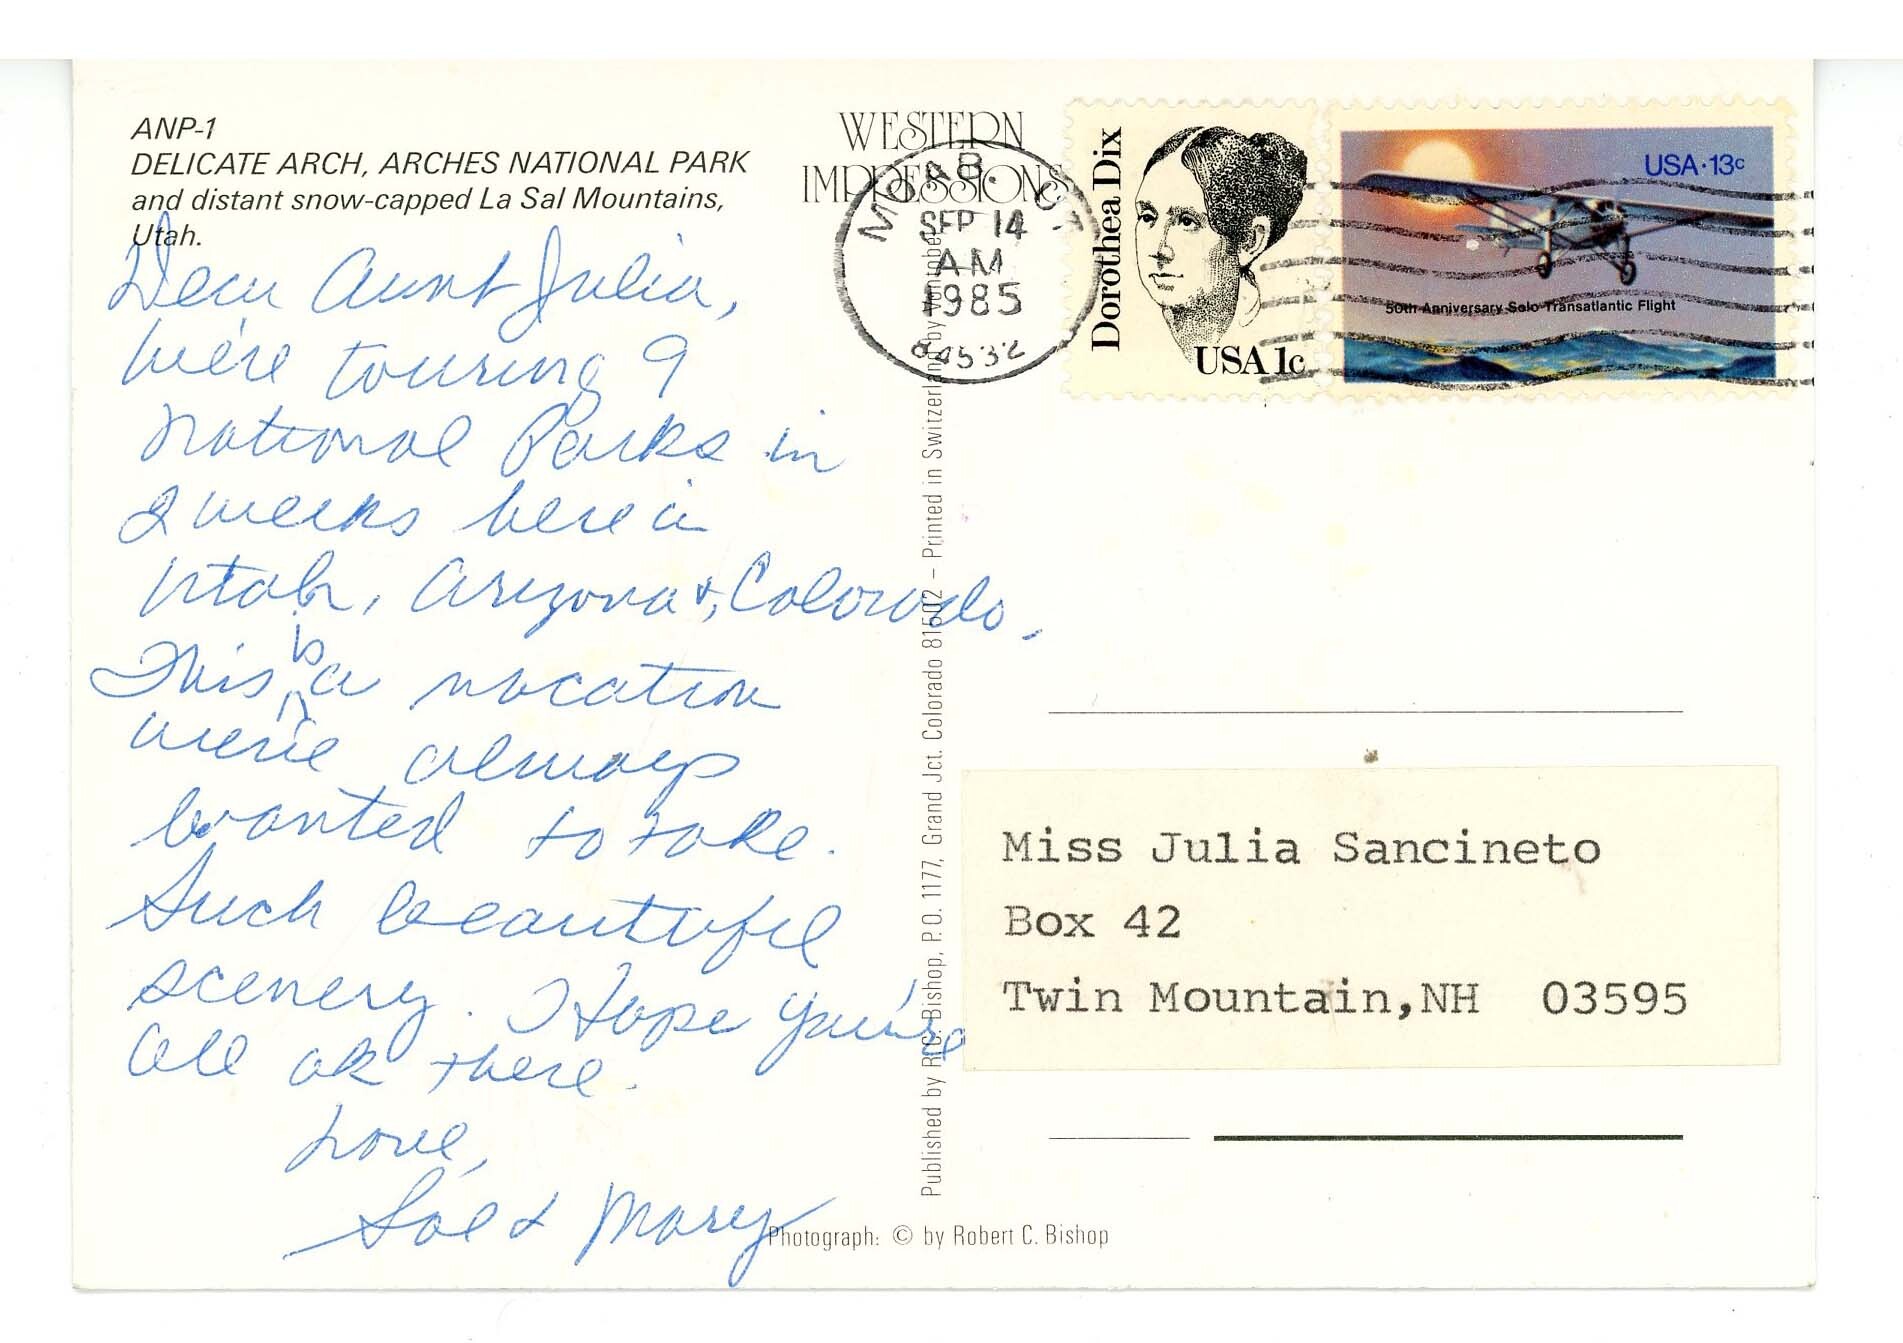 ANP-1
DELICATE ARCH, ARCHES NATIONAL PARK
and distant snow-capped La Sal Mountains,
Utah.
Dear Aunt Julia,
We're touring 9
National Parks in
2 weeks here in
Utah, Arizona +, Colorado.
This is a vacation
we've always
wanted to take.
Such beautiful
scenery. I Hope you're
all ok there.
Love,
Sal & Mary
WESTERN
IMPRESSIONS
MOAB. UT
SEP 14
AM
1985
84532
Dorothea Dix
USA 1c
USA·13c
50th Anniversary Solo Transatlantic Flight
Published by R. C. Bishop, P.O. 1177, Grand Jct. Colorado 81502 – Printed in Switzerland by
Miss Julia Sancineto
Box 42
Twin Mountain,NH 03595
Photograph: © by Robert C. Bishop